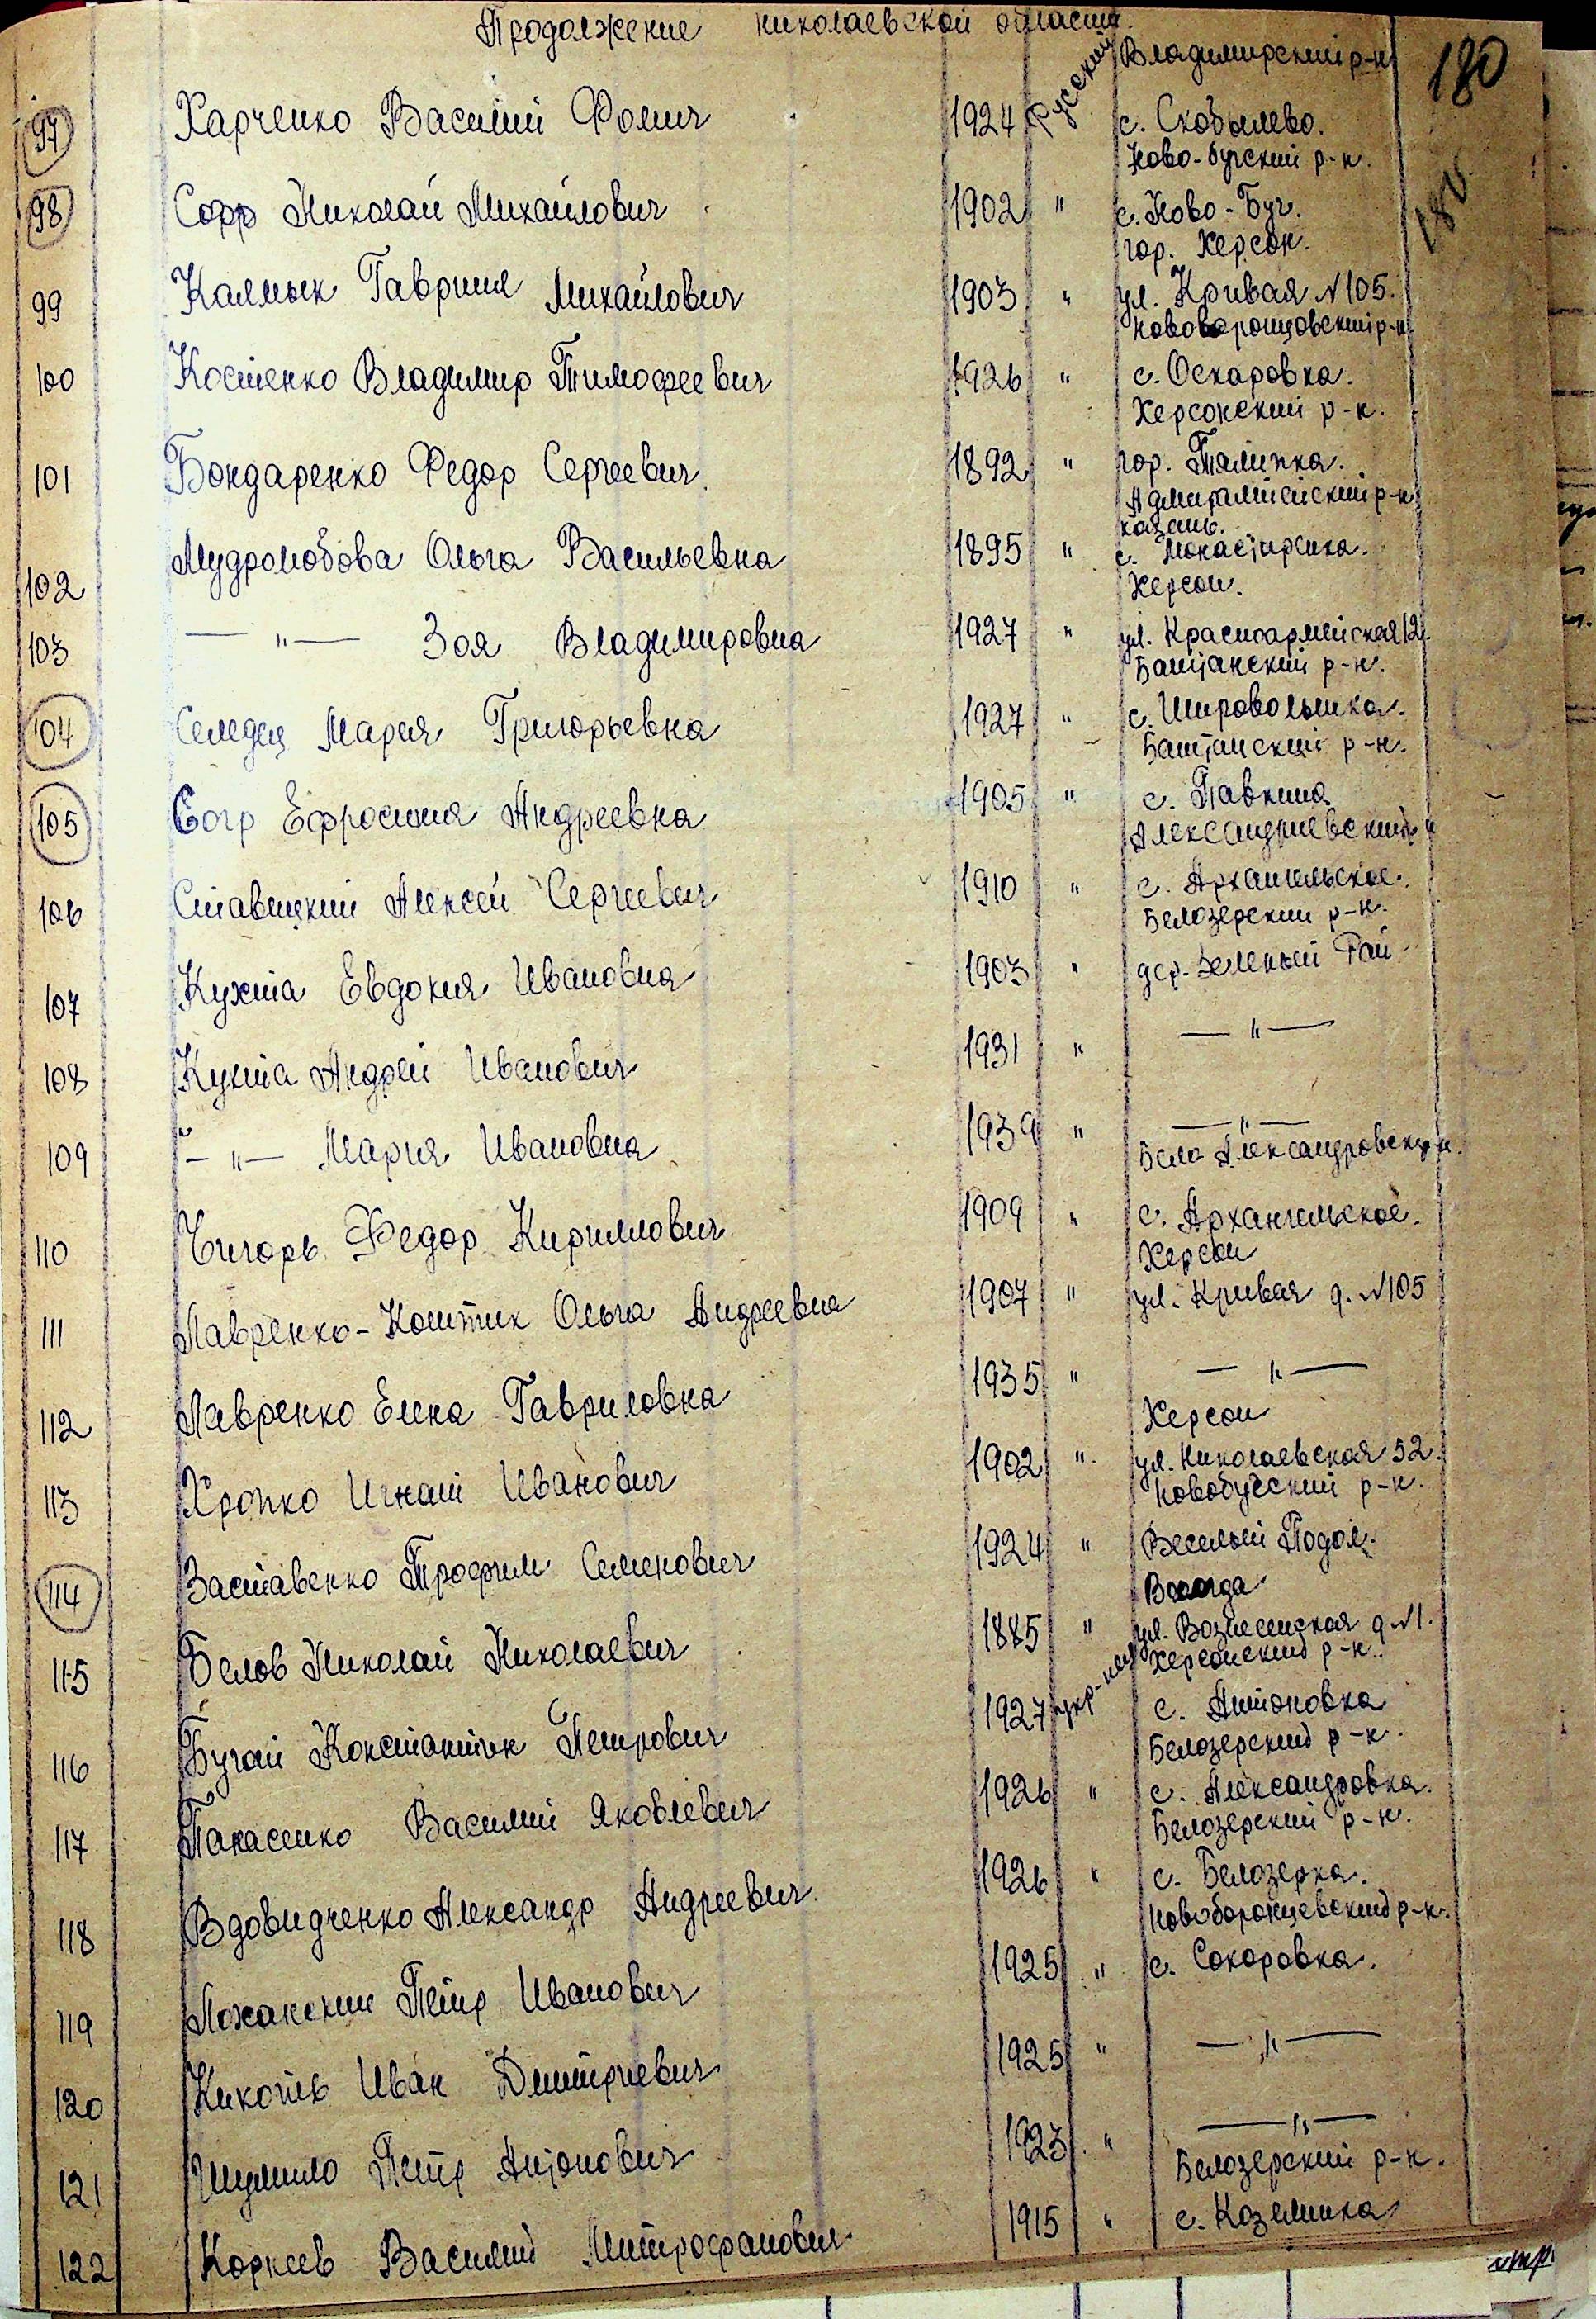 Продолжение николаевской области.
Владимирский р-н 180
97 Харченко Василий Фомич 1924 Русский с. Скобылево.
Ново-бугский р-н.
98 Сорр Николай Михайлович 1902 " с. Ново-Буг. 180
гор. Херсон.
99 Калмык Гавриил Михайлович 1903 " ул. Кривая №105.
нововоронцовский р-н.
100 Костенко Владимир Тимофеевич 1926 " с. Оскаровка.
Херсонский р-н.
101 Бондаренко Федор Сергеевич 1892 " гор.
р-н
казань.
102 Мудролюбова Ольга Васильевна 1895 " с. Монастирска.
Херсон.
103 — " — Зоя Владимировна 1927 " ул. Красноармейская 12.
Баштанский р-н.
104 Селедец Мария Григорьевна 1927 "
Баштанский р-н.
105 Ефросиния Андреевна 1905 " с.
106 Ставицкий Алексей Сергеевич 1910 " с. Архангельское.
Белозерский р-н.
107 Кухта Евдокия Ивановна 1903 " дер. Зеленый Гай
108 Кухта Андрей Иванович 1931 " — " —
109 — " — Мария Ивановна 1939 " — " —
110 Чигорь Федор Кириллович 1909 " с. Архангельское.
Херсон
111 Лавренко- Ольга Андреевна 1907 " ул. Кривая д. №105
112 Лавренко Елена Гавриловна 1935 " — " —
Херсон
113 Хропко Игнат Иванович 1902 " ул. Николаевская 52.
новобугский р-н.
114 Заставенко Трофим Семенович 1924 " Веселый Подол.
115 Белов Николай Николаевич 1885 " ул. Вознесенская д №1.
Херсонский р-н.
116 Бугай Константин Петрович 1927 укр-нец с. Антоновка
Белозерский р-н.
117 Панасенко Василий Яковлевич 1926 " с. Александровка.
Белозерский р-н.
118 Вдовидченко Александр Андреевич 1926 " с. Белозерка.
р-н.
119 Петр Иванович 1925 " с. Сокоровка.
120 Кикоть Иван Дмитриевич 1925 " — " —
121 Шумило Петр Антонович 1923 " — " —
Белозерский р-н.
122 Корнеев Василий Митрофанович 1915 " с.